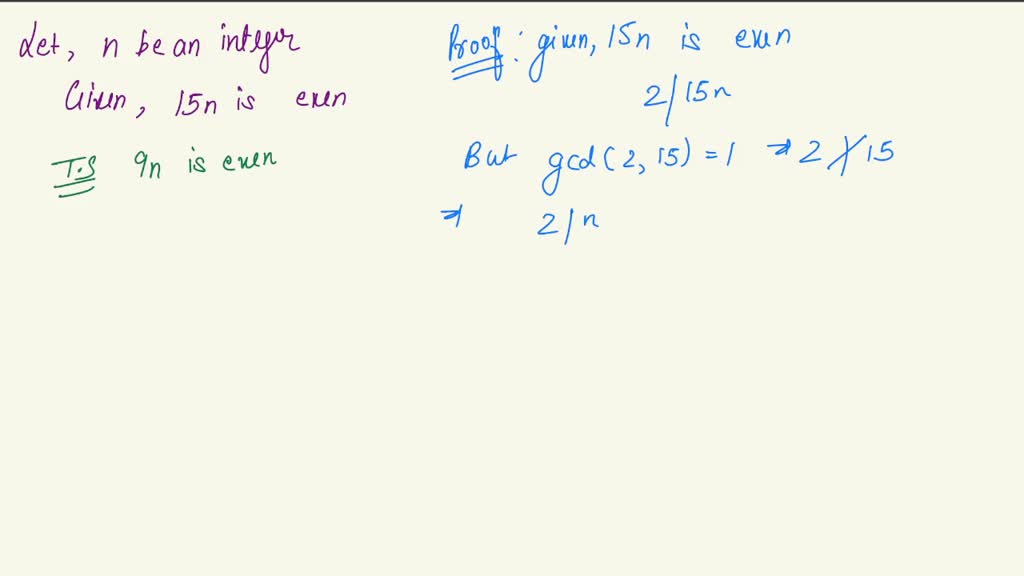 Let, n be an integer
Given, 15n is even
T.S 9n is even
Proof: given, 15n is even
2/15n
But gcd(2, 15) = 1 ⇒ 2∤15
⇒ 2/n